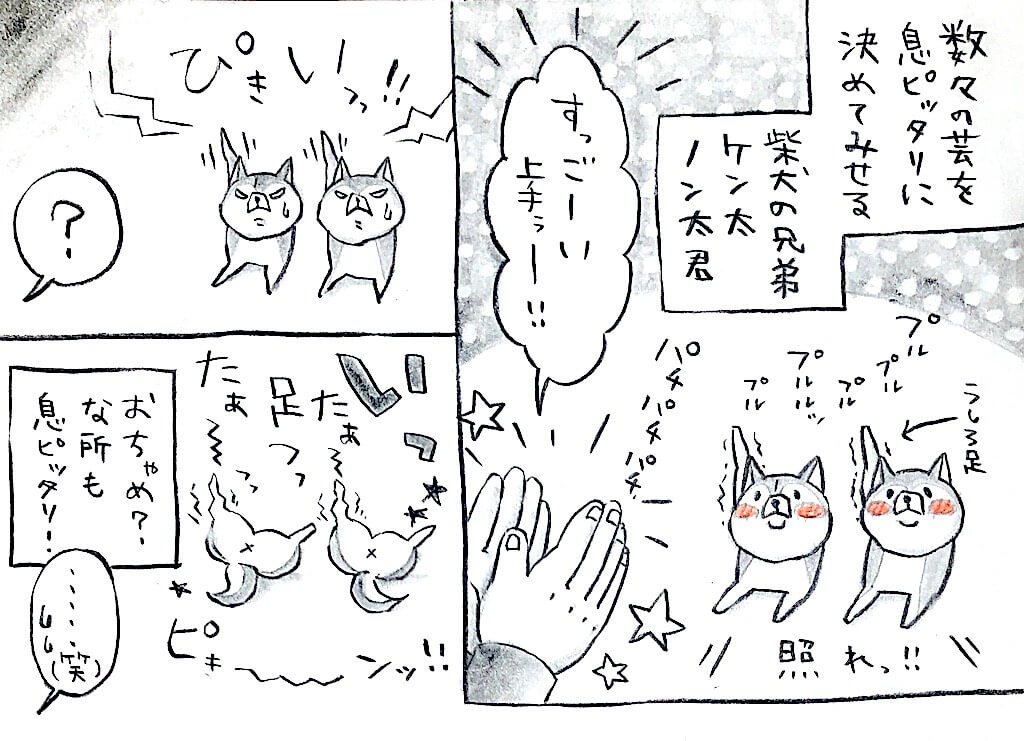 数々の芸を
息ピッタリに
決めてみせる
柴犬の兄弟
ケン太
ノン太君
すっごーい
上手っー!!
プル
プル
プル
プルルッ
プル
うしろ足
パチ
パチ
パチ
照れっ!!
ぴきいっ!!
?
足
たぁ
たぁ
っっ
ピキ〜〜ンッ!!
おちゃめ?
な所も
息ピッタリ!
......
(笑)